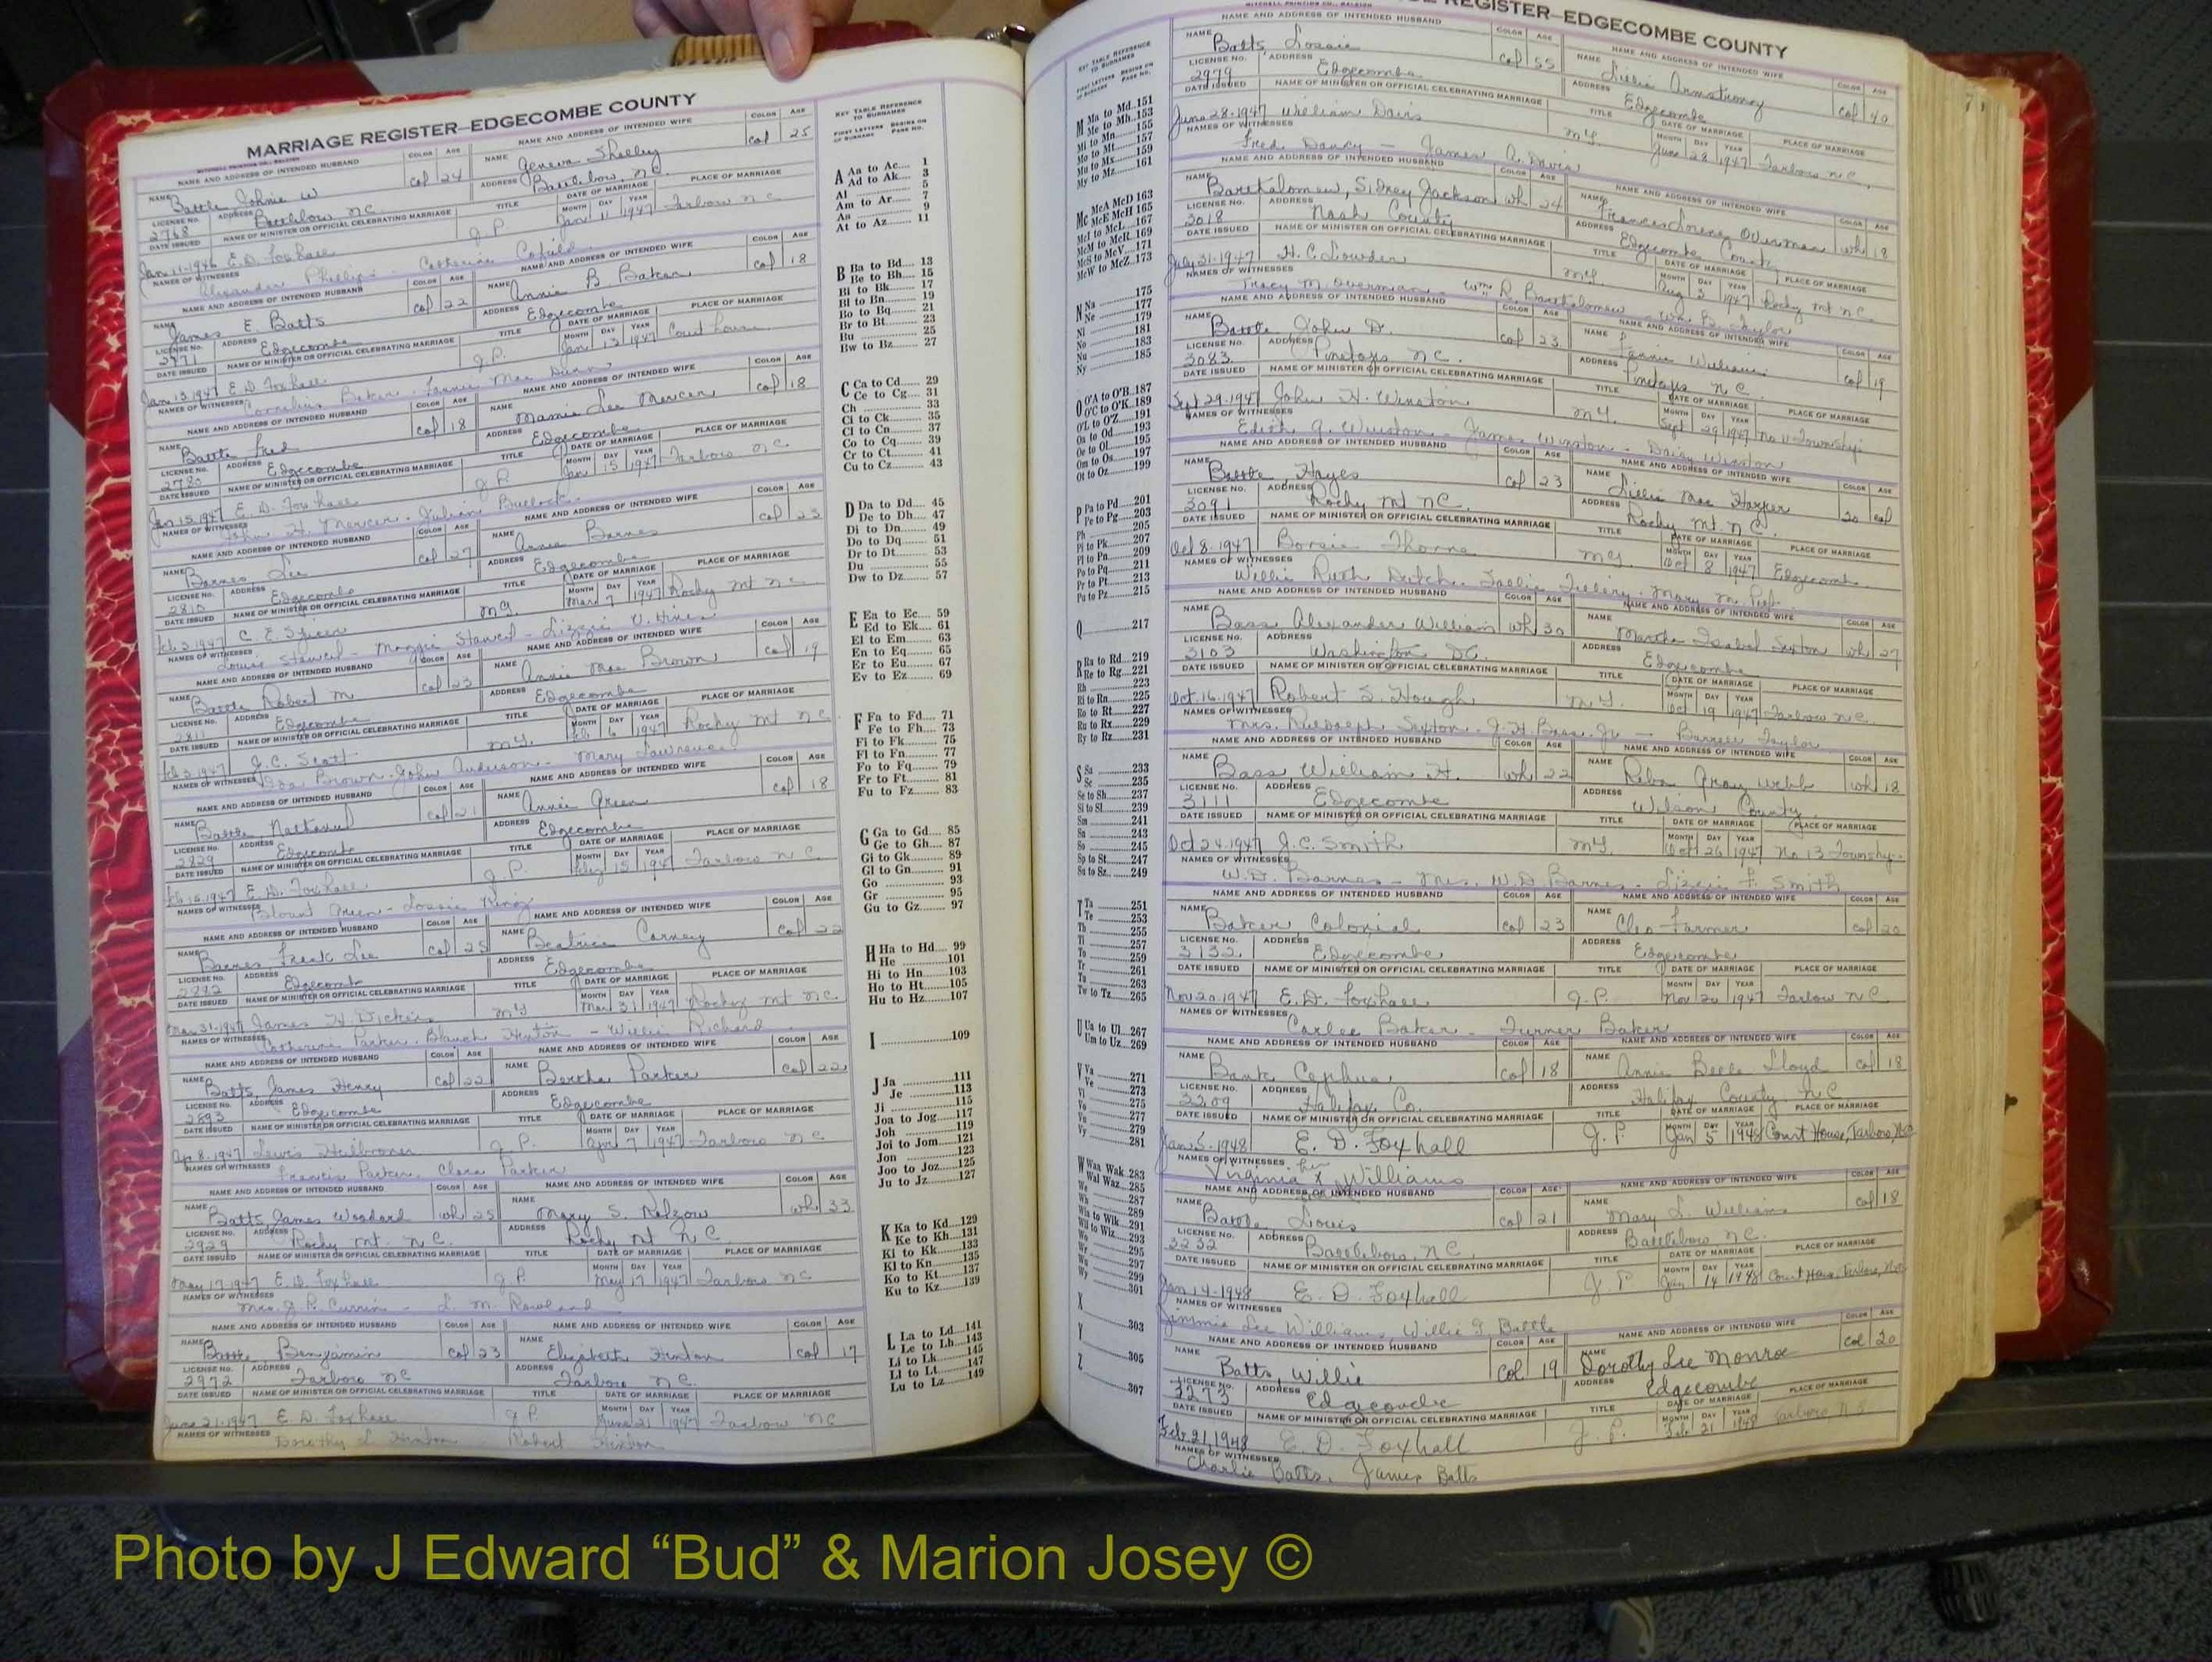 MARRIAGE REGISTER–EDGECOMBE COUNTY
NAME AND ADDRESS OF INTENDED HUSBAND COLOR AGE NAME AND ADDRESS OF INTENDED WIFE COLOR AGE
NAME Battle Johnie W col 24 NAME Geneva Shelley col 25
LICENSE NO. 2768 ADDRESS Battleboro NC ADDRESS Battleboro, N.C.
DATE ISSUED NAME OF MINISTER OR OFFICIAL CELEBRATING MARRIAGE TITLE DATE OF MARRIAGE PLACE OF MARRIAGE
Jan 11-1946 E. D. Foxhall J. P. Jan 11 1947 Tarboro N C
NAMES OF WITNESSES Alexander Phillips - Catherine
NAME James E. Batts col 22 NAME Annie B. Baker col 18
LICENSE NO. 2771 ADDRESS Edgecombe ADDRESS Edgecombe
Jan 13 1947 E. D. Foxhall J. P. Jan 13 1947 Court house
NAMES OF WITNESSES Cornelius Baker - Fannie Mae Dunn
NAME Battle Fred col 18 NAME Mamie Lee Mercer col 18
LICENSE NO. 2780 ADDRESS Edgecombe ADDRESS Edgecombe
Jan 15 1947 E. D. Foxhall J. P. Jan 15 1947 Tarboro N C
NAMES OF WITNESSES John H. Mercer - Bullock
NAME Barnes, Lee col 27 NAME Annie Barnes col 23
LICENSE NO. 2810 ADDRESS Edgecombe ADDRESS Edgecombe
Feb 3 1947 C. E. Spicer Mar 7 1947 Rocky Mt N C
NAMES OF WITNESSES Louis Stancil - Maggie Stancil - Lizzie V. Hines
NAME Battle Robert M col 23 NAME Annie Mae Brown col 19
LICENSE NO. 2811 ADDRESS Edgecombe ADDRESS Edgecombe
Feb 3 1947 J. C. Scott Feb 6 1947 Rocky Mt N C
NAMES OF WITNESSES Brown - John Anderson - Mary Lawrence
NAME Battle, Nathaniel col 21 NAME Annie Green col 18
LICENSE NO. 2829 ADDRESS Edgecombe ADDRESS Edgecombe
Feb 15 1947 E. D. Foxhall J. P. Feby 15 1947 Tarboro N C
NAMES OF WITNESSES Blount Green - Lossie King
NAME Barnes Frank Lee col 25 NAME Beatrice Carney col 22
LICENSE NO. 2882 ADDRESS Edgecombe ADDRESS Edgecombe
Mar 31-1947 James H. Dickens Mar 31 1947 Rocky Mt N C
NAMES OF WITNESSES Catherine Parker - Blanch Hinton - Willie Richard
NAME Batts, James Henry col 22 NAME Bertha Parker col 22
LICENSE NO. 2893 ADDRESS Edgecombe ADDRESS Edgecombe
Apr 8. 1947 Lewis Heilbroner J. P. Apr 7 1947 Tarboro N C
NAMES OF WITNESSES Francis Parker, Clara Parker
NAME Batts, James Woodard wh 25 NAME Mary S. wh 33
LICENSE NO. 2929 ADDRESS Rocky Mt. N. C. ADDRESS Rocky Mt N C
May 17-1947 E. D. Foxhall J. P. May 17 1947 Tarboro N C
NAMES OF WITNESSES Mrs. J. R. Currin - L. M. Rowland
NAME Battle Benjamin col 23 NAME Elizabeth Hinton col 17
LICENSE NO. 2972 ADDRESS Tarboro NC ADDRESS Tarboro N C.
June 21-1947 E. D. Foxhall J. P. June 21 1947 Tarboro N C
NAMES OF WITNESSES Dorothy L. Hinton Robert Hinton
KEY TABLE REFERENCE TO SURNAMES
FIRST LETTERS OF SURNAME BEGINS ON PAGE NO.
A Aa to Ac.... 1
Ad to Ak.... 3
Al .... 5
Am to Ar.... 7
As .... 9
At to Az.... 11
B Ba to Bd.... 13
Be to Bh.... 15
Bi to Bk.... 17
Bl to Bn.... 19
Bo to Bq.... 21
Br to Bt.... 23
Bu .... 25
Bw to Bz.... 27
C Ca to Cd.... 29
Ce to Cg.... 31
Ch .... 33
Ci to Ck.... 35
Cl to Cn.... 37
Co to Cq.... 39
Cr to Ct.... 41
Cu to Cz.... 43
D Da to Dd.... 45
De to Dh.... 47
Di to Dn.... 49
Do to Dq.... 51
Dr to Dt.... 53
Du .... 55
Dw to Dz.... 57
E Ea to Ec.... 59
Ed to Ek.... 61
El to Em.... 63
En to Eq.... 65
Er to Eu.... 67
Ev to Ez.... 69
F Fa to Fd.... 71
Fe to Fh.... 73
Fi to Fk.... 75
Fl to Fn.... 77
Fo to Fq.... 79
Fr to Ft.... 81
Fu to Fz.... 83
G Ga to Gd.... 85
Ge to Gh.... 87
Gi to Gk.... 89
Gl to Gn.... 91
Go .... 93
Gr .... 95
Gu to Gz.... 97
H Ha to Hd.... 99
He ....101
Hi to Hn....103
Ho to Ht....105
Hu to Hz....107
I ....109
J Ja ....111
Je ....113
Ji ....115
Joa to Jog....117
Joh ....119
Joi to Jom....121
Jon ....123
Joo to Joz....125
Ju to Jz....127
K Ka to Kd....129
Ke to Kh....131
Ki to Kk....133
Kl to Kn....135
Ko to Kt....137
Ku to Kz....139
L La to Ld....141
Le to Lh....143
Li to Lk....145
Ll to Lt....147
Lu to Lz....149
REGISTER–EDGECOMBE COUNTY
NAME AND ADDRESS OF INTENDED HUSBAND COLOR AGE NAME AND ADDRESS OF INTENDED WIFE COLOR AGE
NAME Batts, Lossie col 55 NAME Lillie Armstrong col 40
LICENSE NO. 2979 ADDRESS Edgecombe ADDRESS Edgecombe
June 28-1947 William Davis June 28 1947 Tarboro N C.
NAMES OF WITNESSES Fred Dancy - James A. Davis
NAME Bartholomew, Sidney Jackson wh 24 NAME Frances Overman wh 18
LICENSE NO. 3018 ADDRESS Nash County ADDRESS Edgecombe County
July 31-1947 H. C. Lowder Aug 3 1947 Rocky Mt N C.
NAMES OF WITNESSES Tracy M. Overman - Wm R. Bartholomew - Wm B. Taylor
NAME Battle, John D. col 23 NAME Fannie Williams col 19
LICENSE NO. 3083 ADDRESS Pinetops N C. ADDRESS Pinetops N C.
Sept 29-1947 John H. Winston Sept 29 1947 No 11 Township
NAMES OF WITNESSES Edith G. Winston - James Winston - Daisy Winston
NAME Battle, Hayes col 23 NAME Lillie Mae Harper 20 col
LICENSE NO. 3091 ADDRESS Rocky Mt N C. ADDRESS Rocky Mt. N. C.
Oct 8-1947 Thorne Oct 8 1947 Edgecombe
NAMES OF WITNESSES Willie Ruth - Mary M.
NAME Bass Alexander William wh 30 NAME Martha Isabel Sexton wh 27
LICENSE NO. 3103 ADDRESS Washington DC. ADDRESS Edgecombe
Oct. 16-1947 Robert S. Hough Oct 19 1947 Tarboro N C.
NAMES OF WITNESSES Mrs. Rudolph Sexton - J. H. Bass Jr - Taylor
NAME Bass, William H. wh 22 NAME Reba Gray Webb wh 18
LICENSE NO. 3111 ADDRESS Edgecombe ADDRESS Wilson County
Oct 24-1947 J. C. Smith Oct 26 1947 No 13 Township
NAMES OF WITNESSES W. D. Barnes - Mrs. W. D. Barnes - Lizzie F. Smith
NAME Baker, Colonial col 23 NAME Cleo Farmer col 20
LICENSE NO. 3132 ADDRESS Edgecombe ADDRESS Edgecombe
Nov 20-1947 E. D. Foxhall J. P. Nov 20 1947 Tarboro N C
NAMES OF WITNESSES Carlee Baker - Turner Baker
NAME Bank Cephus col 18 NAME Annie Belle Lloyd col 18
LICENSE NO. 3209 ADDRESS Halifax Co. ADDRESS Halifax County N C
Jan 5-1948 E. D. Foxhall J. P. Jan 5 1948 Court House, Tarboro, N.C.
NAMES OF WITNESSES Virginia her X Williams
NAME Battle, Louis col 21 NAME Mary L. Williams col 18
LICENSE NO. 3232 ADDRESS Battleboro, N.C. ADDRESS Battleboro N C.
Jan 14-1948 E. D. Foxhall J. P. Jan 14 1948 Court House, Tarboro, N.C.
NAMES OF WITNESSES Jimmie Lee Williams, Willie G. Battle
NAME Batts, Willie col 19 NAME Dorothy Lee Monroe col 20
LICENSE NO. 3273 ADDRESS Edgecombe ADDRESS Edgecombe
Feb 21, 1948 E. D. Foxhall J. P. Feb. 21 1948 Tarboro, N C
NAMES OF WITNESSES Charlie Batts, James Batts
KEY TABLE REFERENCE TO SURNAMES
M Ma to Md..151
Me to Mh..153
Mi to Mn....155
Mo to Mt....157
Mu to Mx....159
My to Mz....161
Mc McA McD 163
McE McH 165
McI to McL..167
McM to McR..169
McS to McV..171
McW to McZ..173
N Na ....175
Ne ....177
Ni ....179
No ....181
Nu ....183
Ny ....185
O O'A to O'B..187
O'C to O'K..189
O'L to O'Z...191
Oa to Od....193
Oe to Ol....195
Om to Os....197
Ot to Oz....199
P Pa to Pd....201
Pe to Pg....203
Ph ....205
Pi to Pk....207
Pl to Pn....209
Po to Pq....211
Pr to Pt....213
Pu to Pz....215
Q ....217
R Ra to Rd...219
Re to Rg...221
Rh ....223
Ri to Rn....225
Ro to Rt....227
Ru to Rx....229
Ry to Rz....231
S Sa ....233
Sc ....235
Se to Sh....237
Si to Sl....239
Sm ....241
Sn ....243
So ....245
Sp to St....247
Su to Sz....249
T Ta ....251
Te ....253
Th ....255
Ti ....257
To ....259
Tr ....261
Tu ....263
Tw to Tz....265
U Ua to Ul...267
Um to Uz...269
V Va ....271
Ve ....273
Vi ....275
Vo ....277
Vu ....279
Vy ....281
W Waa Wak 283
Wal Waz...285
We ....287
Wh ....289
Wia to Wik...291
Wil to Wiz...293
Wo ....295
Wr ....297
Wu ....299
Wy ....301
X ....303
Y ....305
Z ....307
Photo by J Edward “Bud” & Marion Josey ©